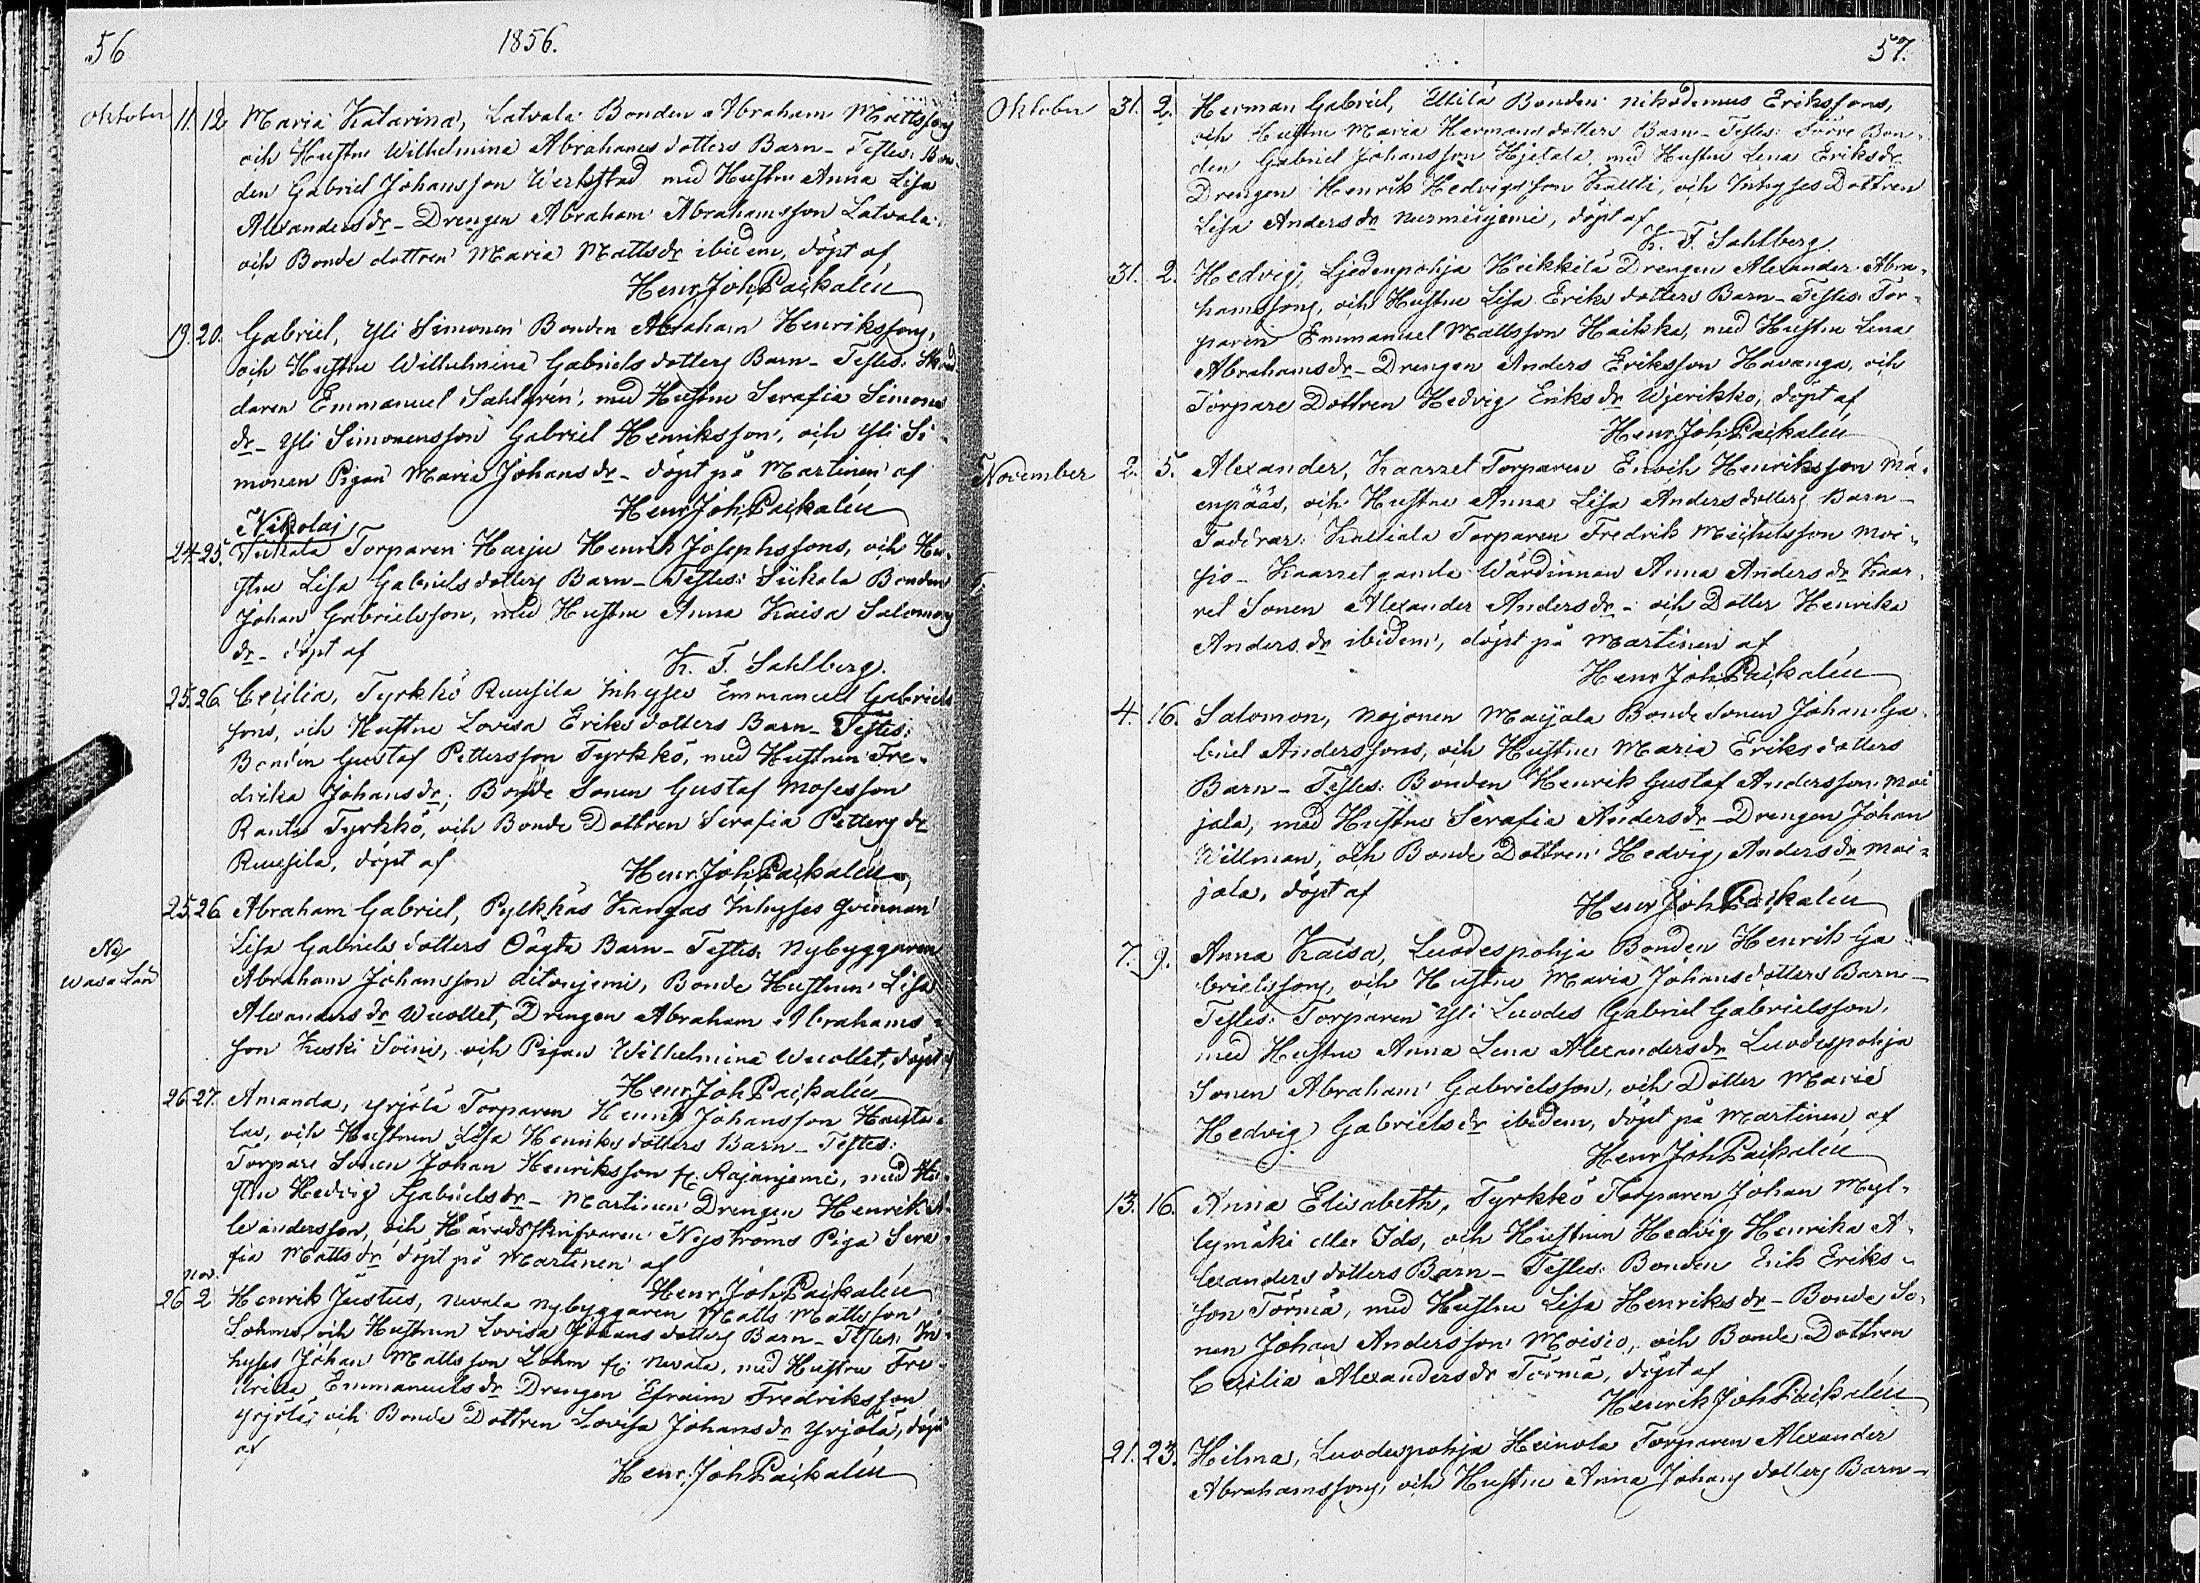 56
1856.
Oktober 11. 12. Maria Katarina, Latvala Bonden Abraham Mattssons
och Hustru Wilhelmina Abrahams dotters Barn_ Testes: Bon
den Gabriel Johansson Werkstad med Hustru Anna Lisa
Alexanders dr_ Drengen Abraham Abrahamsson Latvala
och Bonde dottren Maria Matts dr ibidem, döpt af
Henr. Joh. Paikalén
19. 20. Gabriel, Yli Simonen Bonden Abraham Henrikssons,
och Hustru Wilhelmina Gabriels dotters Barn_ Testes: Skräd
daren Emmanuel Sahlgrén, med Hustru Serafia Simons
dr_ Yli Simonensson Gabriel Henriksson, och Yli Si
monen Pigan Maria Johans dr_ döpt på Martinen af
Henr. Joh. Paikalén
Nikolaj,
24. 25. Torparen Harju Henrik Josephssons, och Hu-
stru Lisa Gabriels dotters Barn_ Testes: Siikala Bonden
Johan Gabrielsson, med Hustru Anna Kaisa Salomons
dr_ döpt af
K. F. Sahlberg.
25. 26. Cecilia, Tyrkkö Ruusila Inhyses Emmanuel Gabriels
sons, och Hustru Lovisa Eriks dotters Barn_ Testes:
Bonden Gustaf Pettersson Tyrkkö, med Hustrun Fre-
drika Johans dr; Bonde Sonen Gustaf Mosesson
Ranta Tyrkkö, och Bonde Dottren Serafia Petters dr
Ruusila, döpt af
Henr. Joh. Paikalén
25. 26. Abraham Gabriel, Pylkkäs Kangas Inhyses Qvinnan
Lisa Gabriels dotters Oägta Barn_ Testes: Nybyggaren
Ny
Wasa Län
Abraham Johansson Aitonjemi, Bonde Hustrun Lisa
Alexanders dr Wuollet, Drengen Abraham Abrahams-
son Keski Soini, och Pigan Wilhelmina Wuollet, döpt af
Henr. Joh. Paikalén
26. 27. Amanda, Yrjölä Torparen Henrik Johansson Hautu
las, och Hustrun Lisa Henriks dotters Barn_ Testes:
Torpare Sonen Johan Henriksson fr. Rajanjemi, med Hu-
stru Hedvig Gabriels dr_ Martinen Drengen Henrik A-
lexandersson, och Häradsskrifvaren Nyströms Piga Sera-
fia Matts dr döpt på Martinen af
Henr. Joh. Paikalén
Nov.
26 2 Henrik Justus, Nevala Nybyggaren Matts Mattsson
Lohms, och Hustrun Lovisa Johans dotters Barn_ Testes: In-
hyses Johan Mattsson Lohm fr. Nevala, med Hustru Fre-
drika Emmanuels dr Drengen Efraim Fredriksson
Yrjölä, och Bonde Dottren Lovisa Johans dr Yrjölä, döpt
af
Henr. Joh. Paikalén
57.
Oktober 31. 2. Herman Gabriel, Ullilä Bonden Nikodemus Erikssons,
och Hustru Maria Hermans dotters Barn_ Testes: Förre Bon-
den Gabriel Johansson Hjetala, med Hustru Lena Eriks dr
Drengen Henrik Hedvigsson Kallti, och Inhyses Dottren
Lisa Anders dr Nurmisjemi, döpt af
K. F. Sahlberg.
31. 2. Hedvig, Ljedenpohja Heikkilä Drengen Alexander Abra-
hamssons, och Hustru Lisa Eriks dotters Barn_ Testes: Tor-
paren Emmanuel Mattsson Haikka, med Hustru Lena
Abrahams dr_ Drengen Anders Eriksson Havanga, och
Torpare Dottren Hedvig Eriks dr Wjerikko, döpt af
Henr. Joh. Paikalén
November 2. 5. Alexander, Kaarret Torparen Enoch Henriksson Mä-
enpääs, och Hustru Anna Lisa Anders dotters Barn_
Faddrar: Kalliala Torparen Fredrik Michelsson Moi-
sio_ Kaarret gamla Wärdinnan Anna Anders dr Kaar-
ret Sonen Alexander Anders dr_ och Dotter Henrika
Anders dr ibidem, döpt på Martinen af
Henr. Joh. Paikalén
4. 16. Salomon, Nojonen Maijala Bonde Sonen Johan Ga-
briel Anderssons, och Hustru Maria Eriks dotters
Barn_ Testes: Bonden Henrik Gustaf Andersson Mai
jala, med Hustru Serafia Anders dr_ Drengen Johan
Willman, och Bonde Dottren Hedvig Anders dr Mai-
jala, döpt af
Henr. Joh. Paikalén
7. 9. Anna Kaisa, Luodespohja Bonden Henrik Ga-
brielssons, och Hustru Maria Johans dotters Barn_
Testes: Torparen Yli Luodes Gabriel Gabrielsson,
med Hustru Anna Lena Alexanders dr Luodespohja
Sonen Abraham Gabrielsson, och Dotter Maria
Hedvig Gabriels dr ibidem, döpt på Martinen af
Henr. Joh. Paikalén
13. 16. Anna Elisabeth, Tyrkkö Torparen Johan Myl-
lymäki eller Ids, och Hustrun Hedvig Henrika A-
lexanders dotters Barn_ Testes: Bonden Erik Eriks-
son Törmä, med Hustru Lisa Henriks dr_ Bonde So-
nen Johan Andersson Moisio, och Bonde Dottren
Cecilia Alexanders dr Törmä, döpt af
Henrik Joh. Paikalén
21. 23. Hilma, Luodespohja Heinola Torparen Alexander
Abrahamssons, och Hustru Anna Johans dotters Barn_